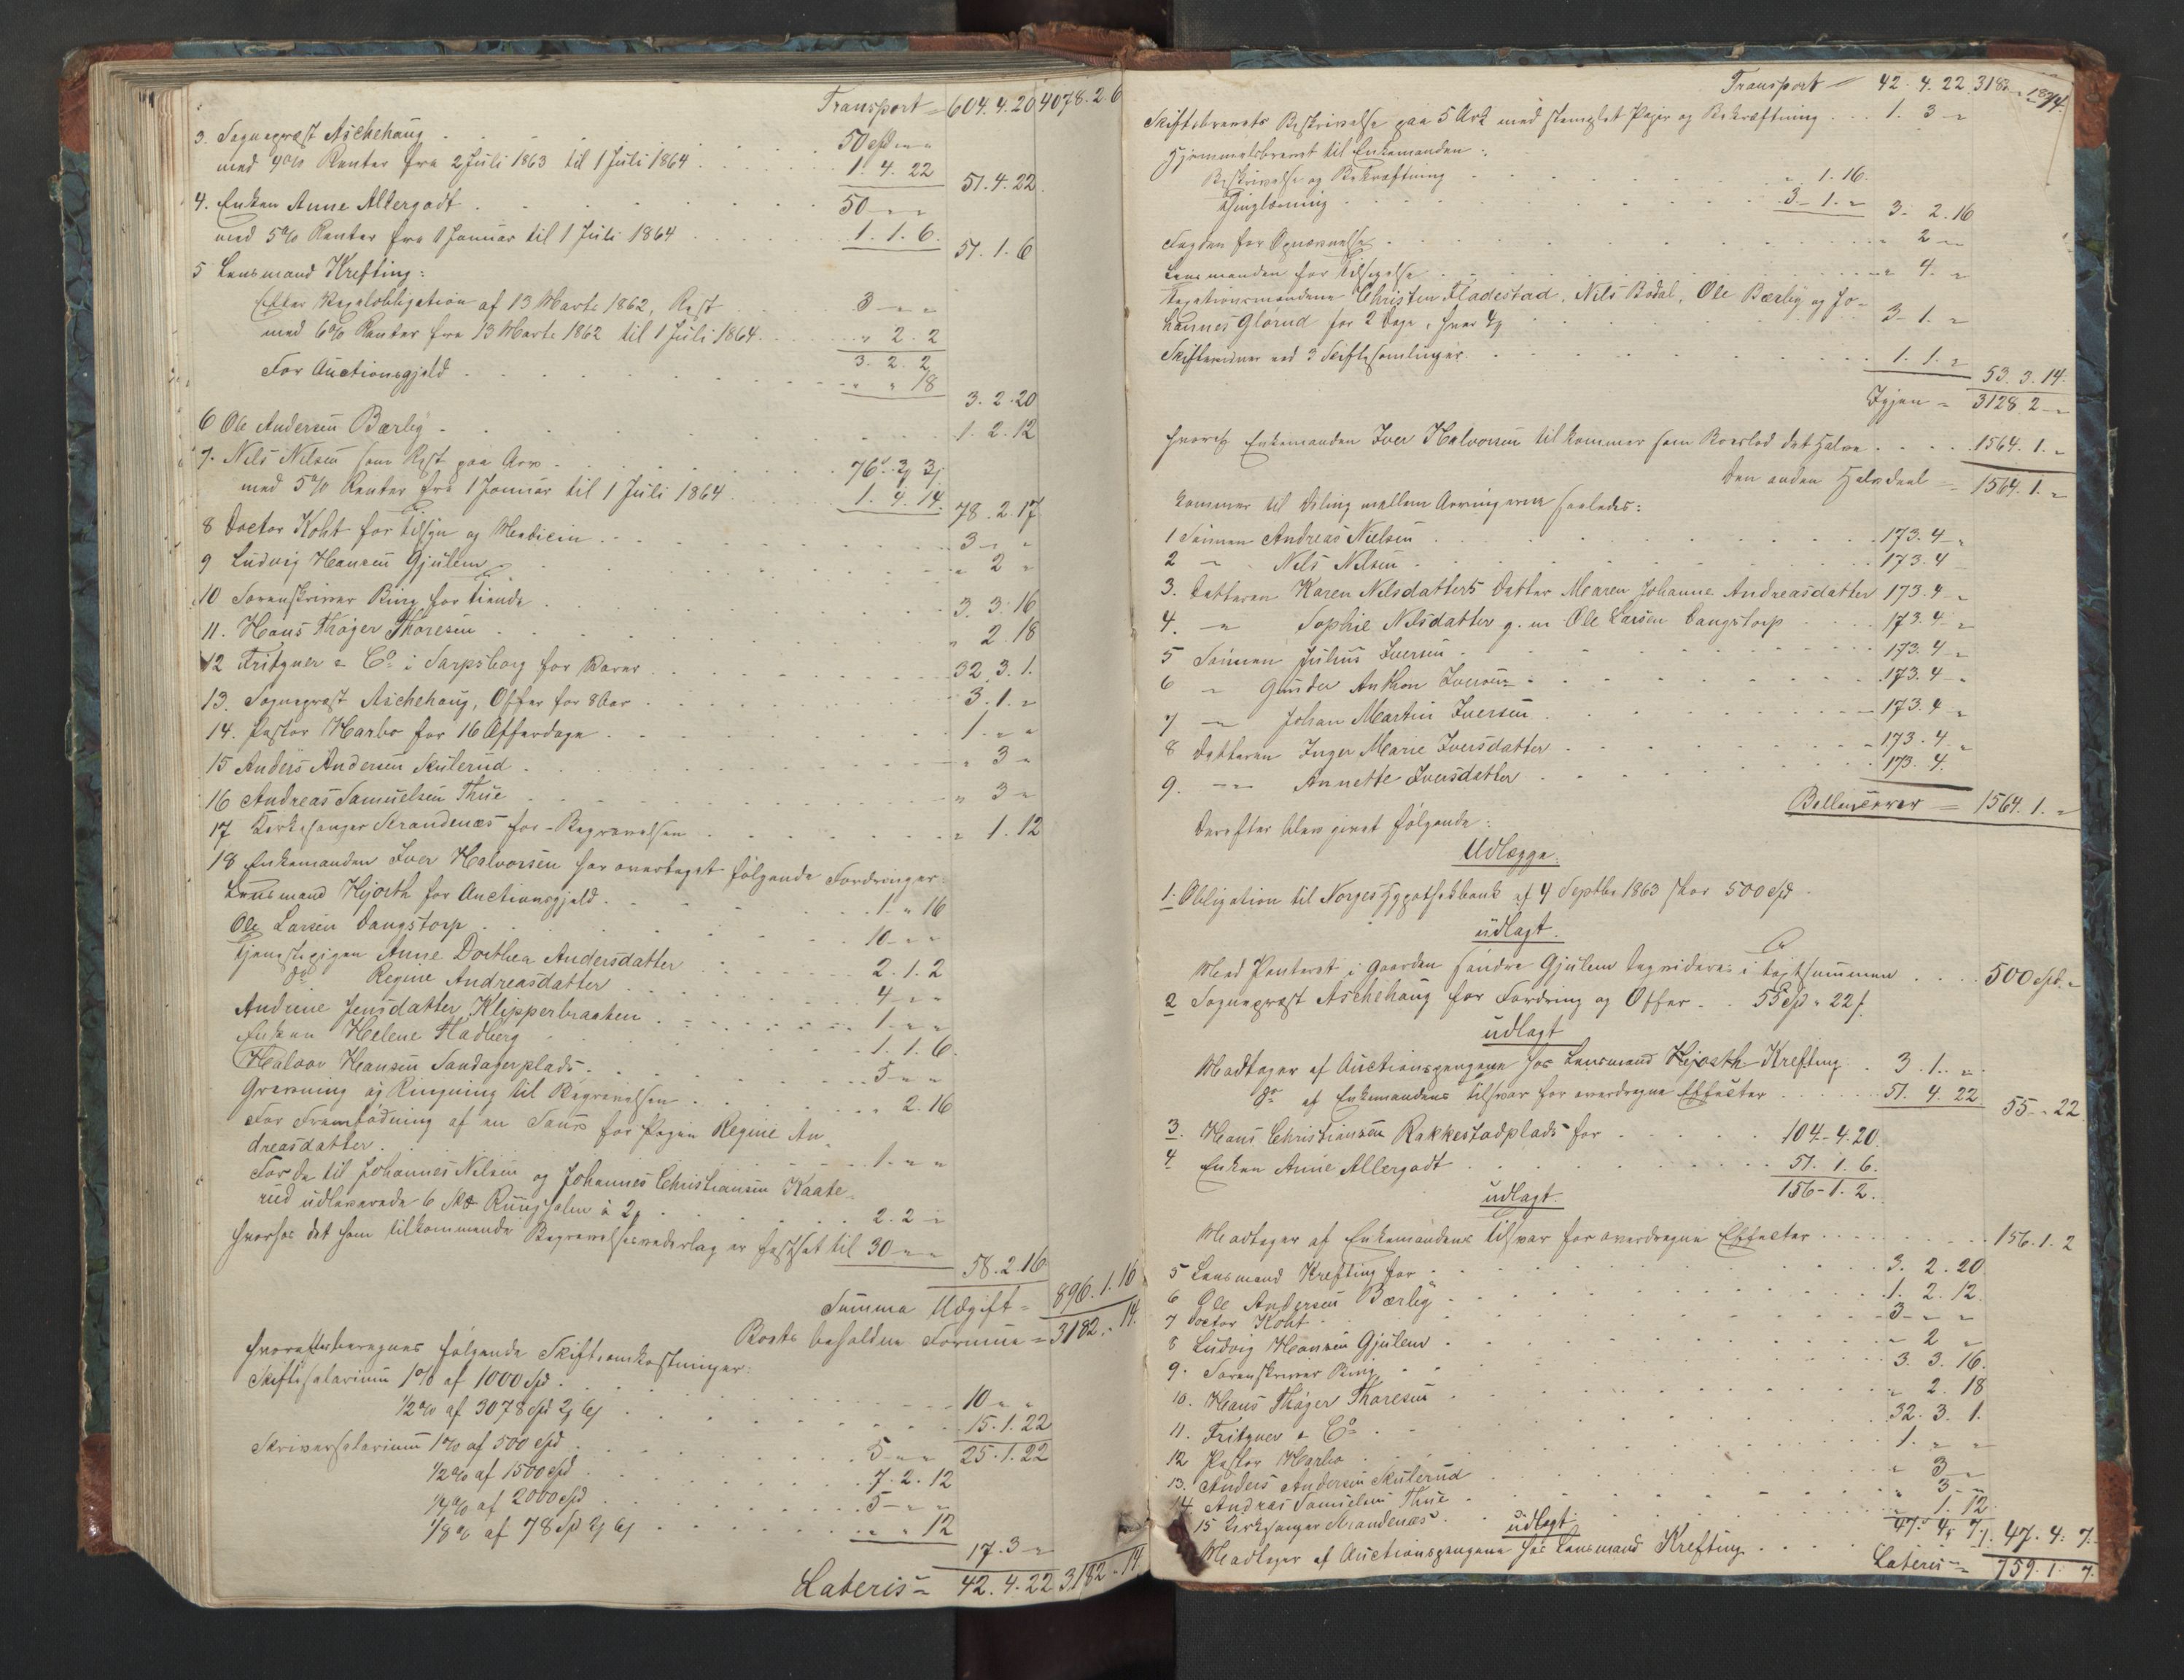 Transport = 604. 4. 20 4078. 2. 6
3. Sognepræst Aschehoug . . . 50 Spd " "
med 4 % Renter fra 2 Juli 1863 til 1 Juli 1864 . . 1. 4. 22 51. 4. 22
4. Enken Anne Allergodt . . . 50 " "
med 5 % Renter fra 1 Januar til 1 Juli 1864 . . 1. 1. 6. 51. 1. 6
5 Lensmand Krefting:
Efter Regalobligation af 13 Marts 1862, Rest 3 " "
med 6 % Renter fra 13 Marts 1862 til 1 Juli 1864 . . " 2. 2
3. 2. 2
For Auctionsgjeld . . . " " 18
3. 2. 20
6 Ole Andersen Bærby . . . 1. 2. 12
7. Nils Nilsen som Rest paa Arv . . . 76. 2 3
med 5 % Renter fra 1 Januar til 1 Juli 1864 . . 1. 4. 14. 78. 2. 17
8 Doctor Koht for Tilsyn og Medicin . . . 3 " "
9 Ludvig Hansen Gjulem . . . " 2 "
10 Sorenskriver Ring for Tiende . . . 3. 3. 16
11. Hans Thøger Thoresen . . . " 2. 18
12 Fritzner & Co i Sarpsborg for Varer . . . 32. 3. 1.
13. Sognepræst Aschehoug, Offer for 8 Aar . . . 3. 1. "
14. Pastor Harbo for 16 Offerdage . . . 1. " "
15 Anders Andersen Skulerud . . . " 3 "
16 Andreas Samuelsen Thue . . . " 3 "
17 Kirkesanger Strandenæs for Begravelsen . . . " 1. 12
18 Enkemanden Iver Halvorsen har overtaget følgende Fordringer:
Lensmand Hjorth for Auctionsgjeld . . . 1. " 16
Ole Larsen Dangstorp . . . 10 " "
Tjenestepigen Anne Dorthea Andersdatter . . . 2. 1. 2
do Regine Andreasdatter . . . 4 " "
Andrine Jensdatter Klipperbraaten . . . 1. " "
Enken Helene Stadberg . . . 1. 1. 6.
Halvor Hansen Sandagerplads . . . 5 " "
Gravning og Ringning til Begravelsen . . . " 2. 16
For Fremfødning af en Sau for Pigen Regine An-
dreasdatter . . . 1. " "
For de til Johannes Nilsen og Johannes Christiansen Kaate-
rud udleverede 6 à 2 . . . 2. 2 "
hvorhos det ham tilkommende Begravelsesvederlag er fastsat til 30 " " 58. 2. 16
Summa Udgift = 896. 1. 16
Boets beholdne Formue = 3182. " 14.
hvorefter beregnes følgende Skifteomkostninger:
Skiftesalarium 1 % af 1000 Spd . . . 10 " "
1/2 % af 3078 Spd 2 6 . . . 15. 1. 22
Skriversalarium 1 % af 500 Spd . . . 5 " " 25. 1. 22
1/2 % af 1500 Spd . . . 7. 2. 12
1/4 % af 2000 Spd . . . 5 " "
1/8 % af 78 Spd 2 6 . . . " " 12
17. 3 "
Lateris = 42. 4. 22 3182 " 14
Transport = 42. 4. 22 3182 " 14.
Skiftebrevets Beskrivelse paa 5 Ark med stemplet Papir og Bekræftning . . . 1. 3 "
Hjemmelsbrevet til Enkemanden:
Beskrivelse og Bekræftning . . . " 1. 16.
Thinglæsning . . . 3. 1. " 3. 2. 16
Fogden for Opnævnelse . . . " 2 "
Lensmanden for Tilsigelse . . . " 4. "
Taxationsmændene Christen Fladestad, Nils Bodal, Ole Bærby og Jo-
hannes Glorud for 2 Dage, hver . . . 3. 1. "
Skiftevidner ved 3 Skiftesamlinger . . . 1. 1. "
53. 3. 14.
Igjen = 3128. 2 "
hvoraf Enkemanden Iver Halvorsen tilkommer som Boeslod det halve . . . 1564. 1. "
Den anden Halvdeel = 1564. 1. "
kommer til Deling mellem Arvingerne saaledes:
1 Sønnen Andreas Nielsen . . . 173. 4 "
2 " Nils Nilsen . . . 173. 4
3. Datteren Karen Nilsdatters Datter Maren Johanne Andreasdatter 173. 4 "
4. " Sophie Nilsdatter g. m. Ole Larsen Dangstorp . . . 173. 4 "
5 Sønnen Julius Iversen . . . 173. 4 "
6 " Gunder Anthon Iversen . . . 173. 4 "
7 " Johan Martin Iversen . . . 173. 4 "
8 Datteren Inger Marie Iversdatter . . . 173. 4 "
9. " Annette Iversdatter . . . 173. 4.
Ballancerer = 1564. 1. "
Derefter blev gjort følgende:
Udlægge.
1. Obligation til Norges Hypothekbank af 4 Septbr 1863 stor 500 Spd
udlagt.
Med Panteret i Gaarden søndre Gjulem . . . 500 Spd. "
2 Sognepræst Aschehoug for Fordring og Offer . . 55 Spd " 22
udlagt
Modtager af Auctionspengene hos Lensmand Hjorth Krefting . 3. 1. "
do af Enkemandens Tilsvar for overdragne Effecter . . . 51. 4. 22 55. " 22
3. Hans Christiansen Rakkestadplads for . . . 104. 4. 20.
4 Enken Anne Allergodt . . . 51. 1. 6.
udlagt. 156. 1. 2.
Modtager af Enkemandens Tilsvar for overdragne Effecter . . . 156. 1. 2
5 Lensmand Krefting for . . . 3. 2. 20
6 Ole Andersen Bærby . . . 1. 2. 12.
7 Doctor Koht . . . 3 " "
8 Ludvig Hansen Gjulem . . . " 2 "
9. Sorenskriver Ring . . . 3. 3. 16.
10. Hans Thøger Thoresen . . . " 2. 18
11. Fritzner & Co . . . 32. 3. 1.
12 Pastor Harbo . . . 1. " "
13. Anders Andersen Skulerud . . . " 3 "
14. Andreas Samuelsen Thue . . . " 3 "
15 Kirkesanger Strandenæs . . . " 1. 12
udlagt. 47. 4. 7. 47. 4. 7.
Modtager af Auctionspengene hos Lensmand Krefting . . .
Lateris = 759. 1. 7.